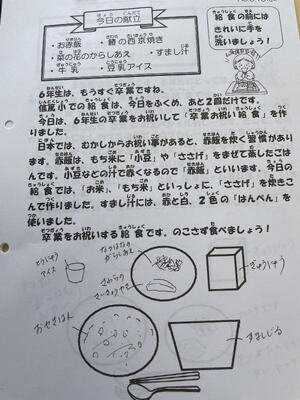 今日の献立
・お赤飯 ・鰆の西京焼き
・菜の花のからしあえ ・すまし汁
・牛乳 ・豆乳アイス
給食の前には
きれいに手を
洗いましょう!
6年生は、もうすぐ卒業ですね。
信篤小での給食は、今日をふくめ、あと2回だけです。
今日は、6年生の卒業をお祝いして「卒業お祝い給食」を作
りました。
日本では、むかしからお祝い事があると、赤飯を炊く習慣があり
ます。赤飯は、もち米に「小豆」や「ささげ」をまぜて蒸したごは
んです。小豆などの汁で赤くなるので「赤飯」といいます。今日の
給食では、「お米」、「もち米」といっしょに、「ささげ」を炊きこ
んで作りました。すまし汁には、赤と白、2色の「はんぺん」を
使いました。
卒業をお祝いする給食です。のこさず食べましょう!
とうにゅう
アイス
なのはなの
からしあえ
さわらの
さいきょうやき
ぎゅうにゅう
おせきはん
すましじる